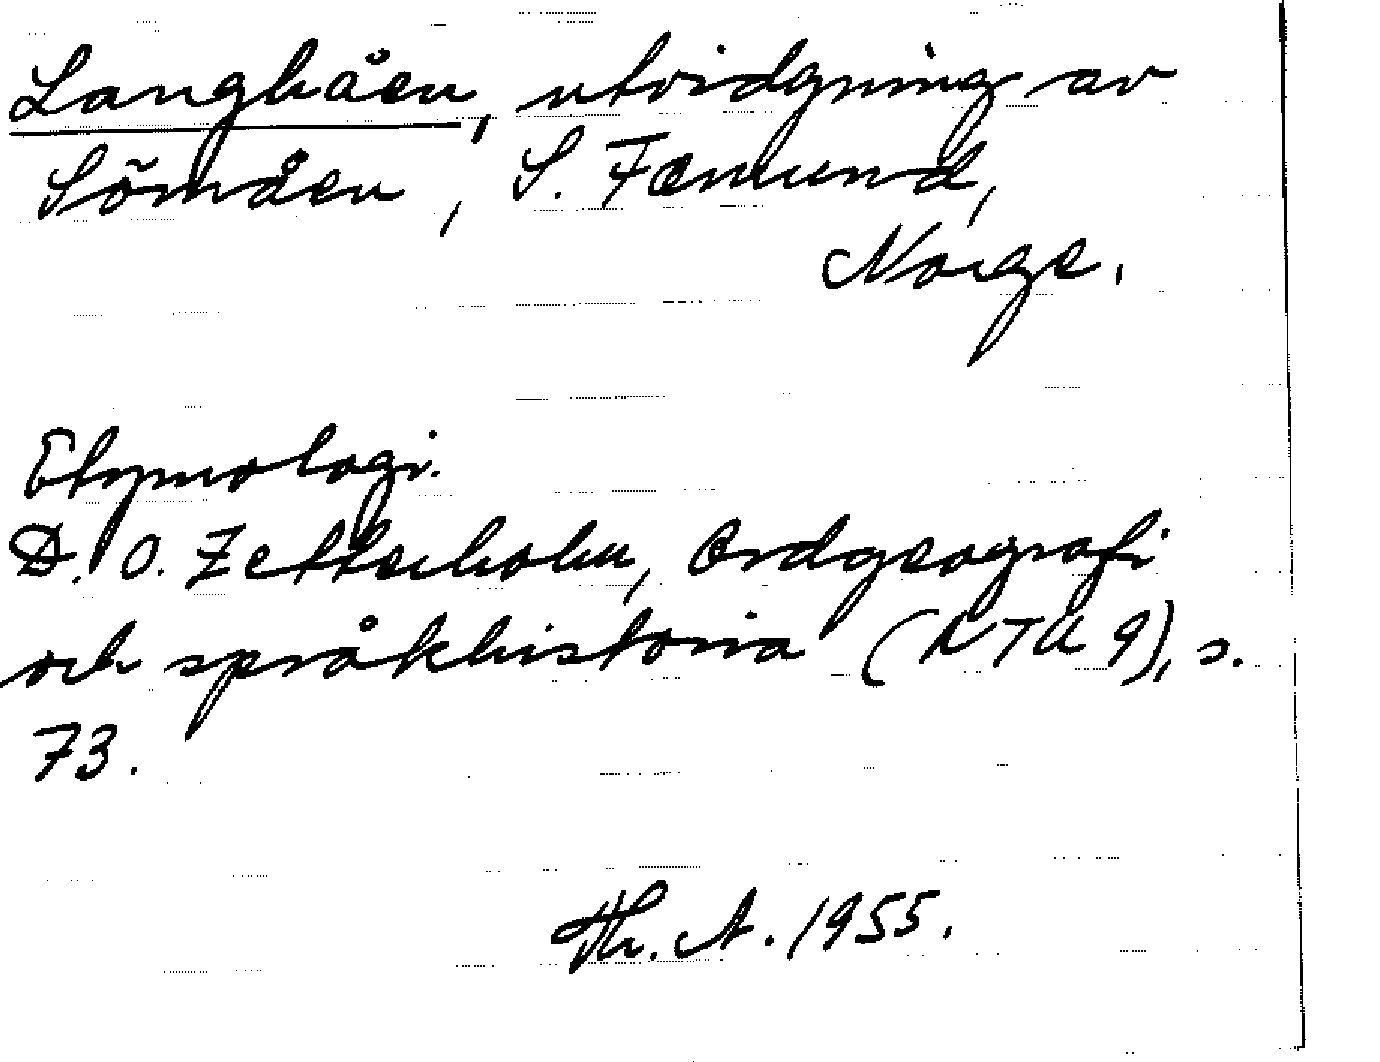 Langhåen, utvidgning av
Sömåen, S. Fæmund,
Norge.
Etymologi.
D. O. Zetterholm, Ordgeografi
och språkhistoria (NTU 9), s.
73.
Th. A. 1955.